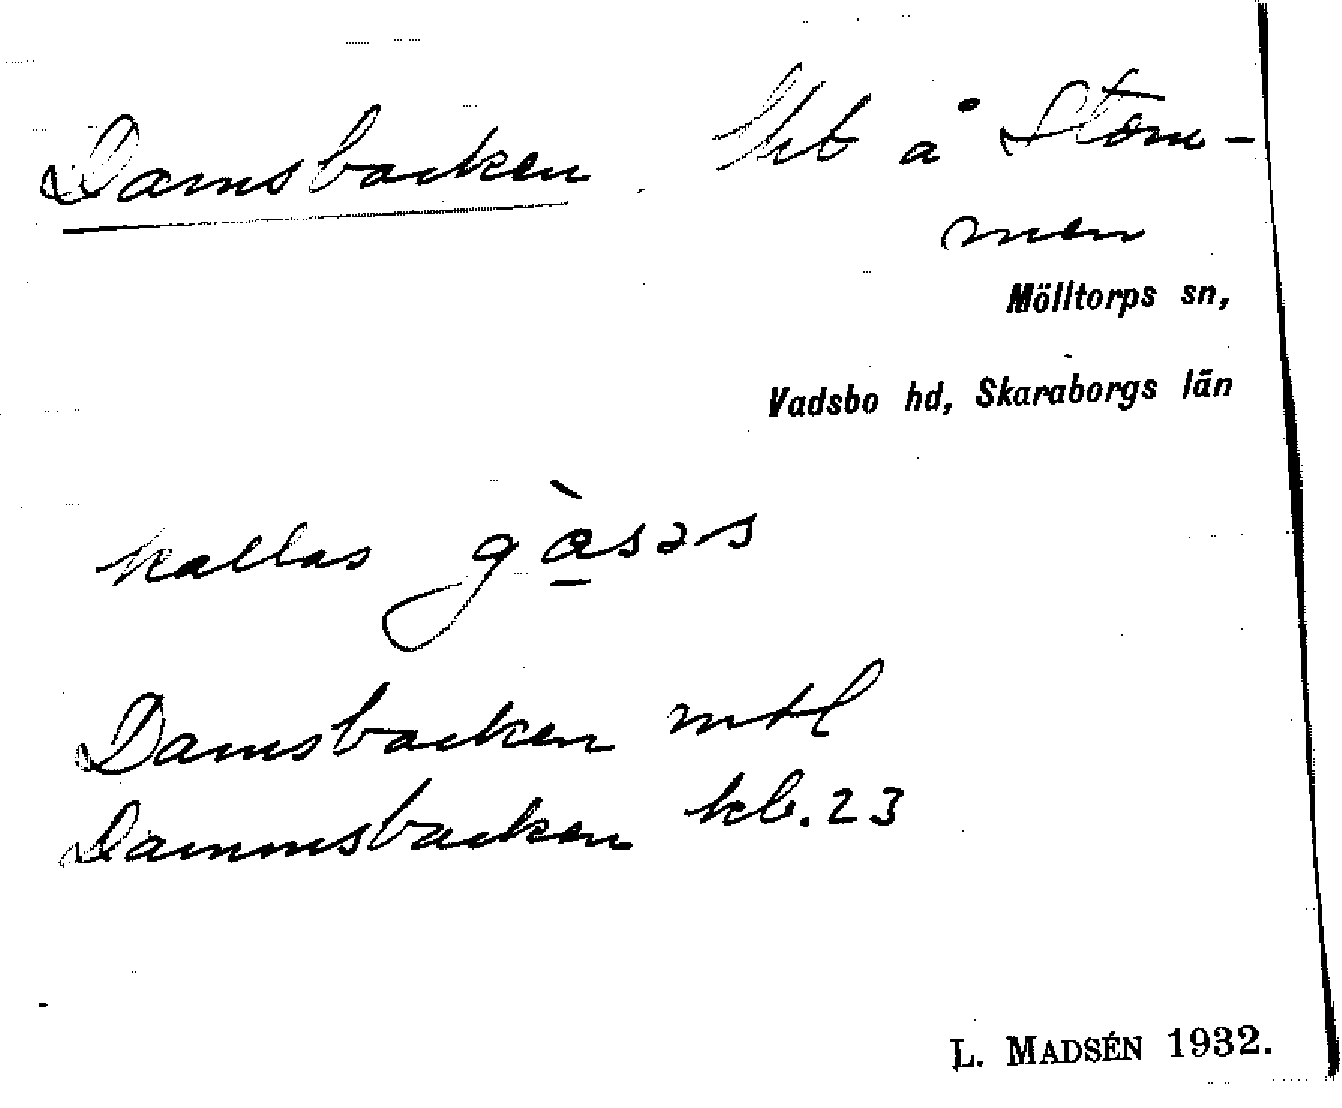 Damsbacken. Hrt å Stom-
men
Mölltorps sn,
Vadsbo hd, Skaraborgs län
kallas gàsəs
Damsbacken mtl
Dammsbacken kb. 23
L. MADSÉN 1932.